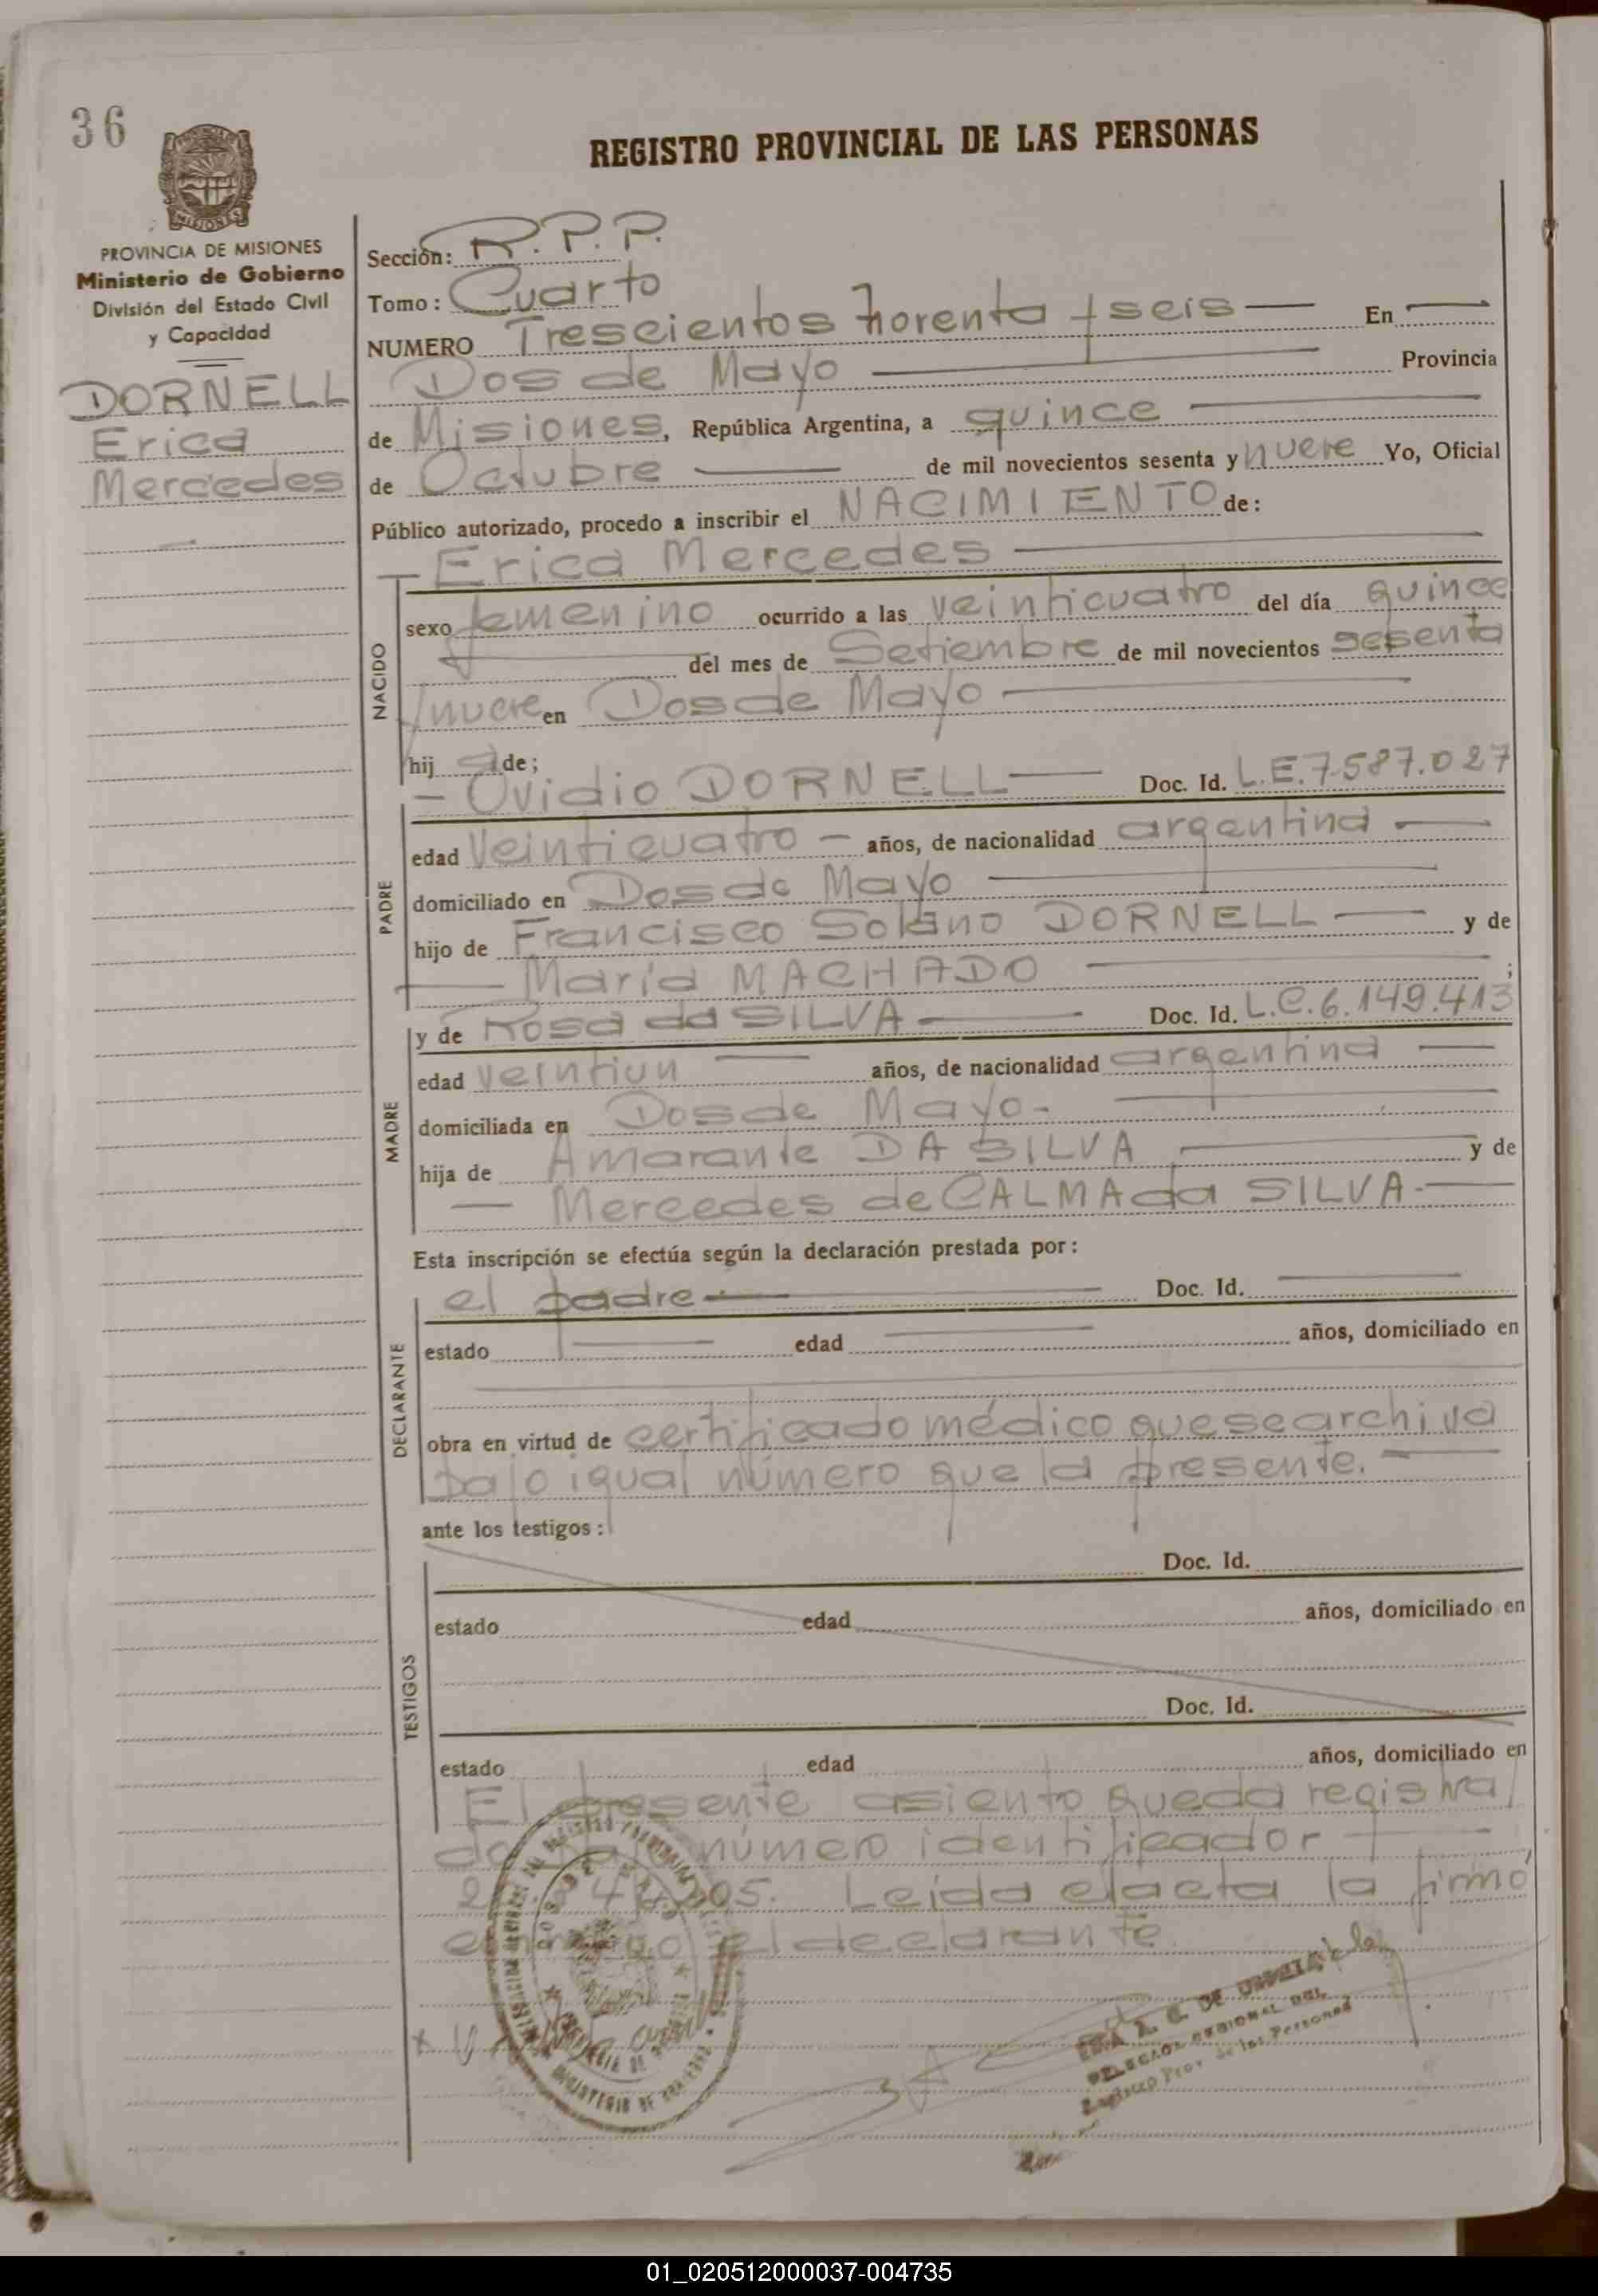 36
REGISTRO PROVINCIAL DE LAS PERSONAS
MISIONES
PROVINCIA DE MISIONES
Ministerio de Gobierno
División del Estado Civil
y Capacidad
DORNELL
Erica
Mercedes
Sección: R.P.P.
Tomo: Cuarto
NUMERO Trescientos norenta y seis En
Dos de Mayo Provincia
de Misiones, República Argentina, a quince
de Octubre de mil novecientos sesenta y nueve Yo, Oficial
Público autorizado, procedo a inscribir el NACIMIENTO de:
Erica Mercedes
NACIDO
sexo femenino ocurrido a las veinticuatro del día quince
del mes de Setiembre de mil novecientos sesenta
y nueve en Dos de Mayo
hij a de;
Ovidio DORNELL Doc. Id. L.E.7.587.027
PADRE
edad Veinticuatro años, de nacionalidad argentina
domiciliado en Dos de Mayo
hijo de Francisco Solano DORNELL y de
María MACHADO ;
y de Rosa da SILVA Doc. Id. L.C.6.149.413
MADRE
edad veintiun años, de nacionalidad argentina
domiciliada en Dos de Mayo.
hija de Amarante DA SILVA y de
Mercedes de CALMA da SILVA.
Esta inscripción se efectúa según la declaración prestada por:
el padre Doc. Id.
DECLARANTE
estado edad años, domiciliado en
obra en virtud de certificado médico que se archiva
bajo igual número que la presente.
ante los testigos:
Doc. Id.
TESTIGOS
estado edad años, domiciliado en
Doc. Id.
estado edad años, domiciliado en
El presente asiento queda registra
número identificador
205. Leída el acta la firmó
el declarante
DE
DELEGADA REGIONAL DEL
Prov. de las Personas
MINISTERIO DE
01_020512000037-004735